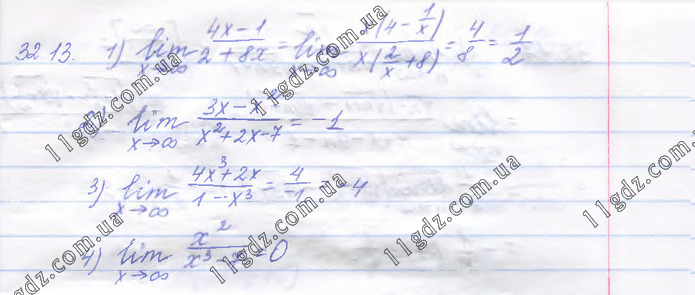 32.13. 1) lim x→∞ (4x-1)/(2+8x) = lim x→∞ x(4-1/x)/x(2/x+8) = 4/8 = 1/2
lim x→∞ (3x-x²)/(x²+2x-7) = -1
3) lim x→∞ (4x³+2x)/(1-x³) = 4/-1 = -4
4) lim x→∞ x²/x³ = 0
11gdz.com.ua
11gdz.com.ua
11gdz.com.ua
11gdz.com.ua
11gdz.com.ua
11gdz.com.ua